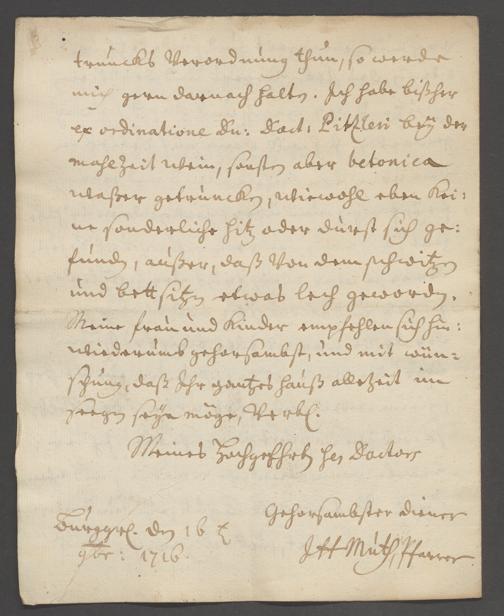 truncks Verordnung thun, so werde
mich gern darnach halten. Ich habe bißher
ex ordinatione Dn: Doct: Pitzleri bey der
mahlzeit wein, sonsten aber betonica
waßer getruncken, wiewohl eben kei-
ne sonderliche hitz oder durst sich ge-
funden, außer, daß von dem schwitzen
und bettsitzen etwas lech geworden.
Meine frau und Kinder empfehlen sich hin-
wiederumb gehorsambst, und mit wün-
schung, daß Ihr gantzes hauß allezeit im
seegen seyn möge, Verbl.
Meines Hochgeehrten Hen Doctors
Gehorsambster diener
Burggrl. den 16 t
9br: 1716.
Muth, Pfarrer